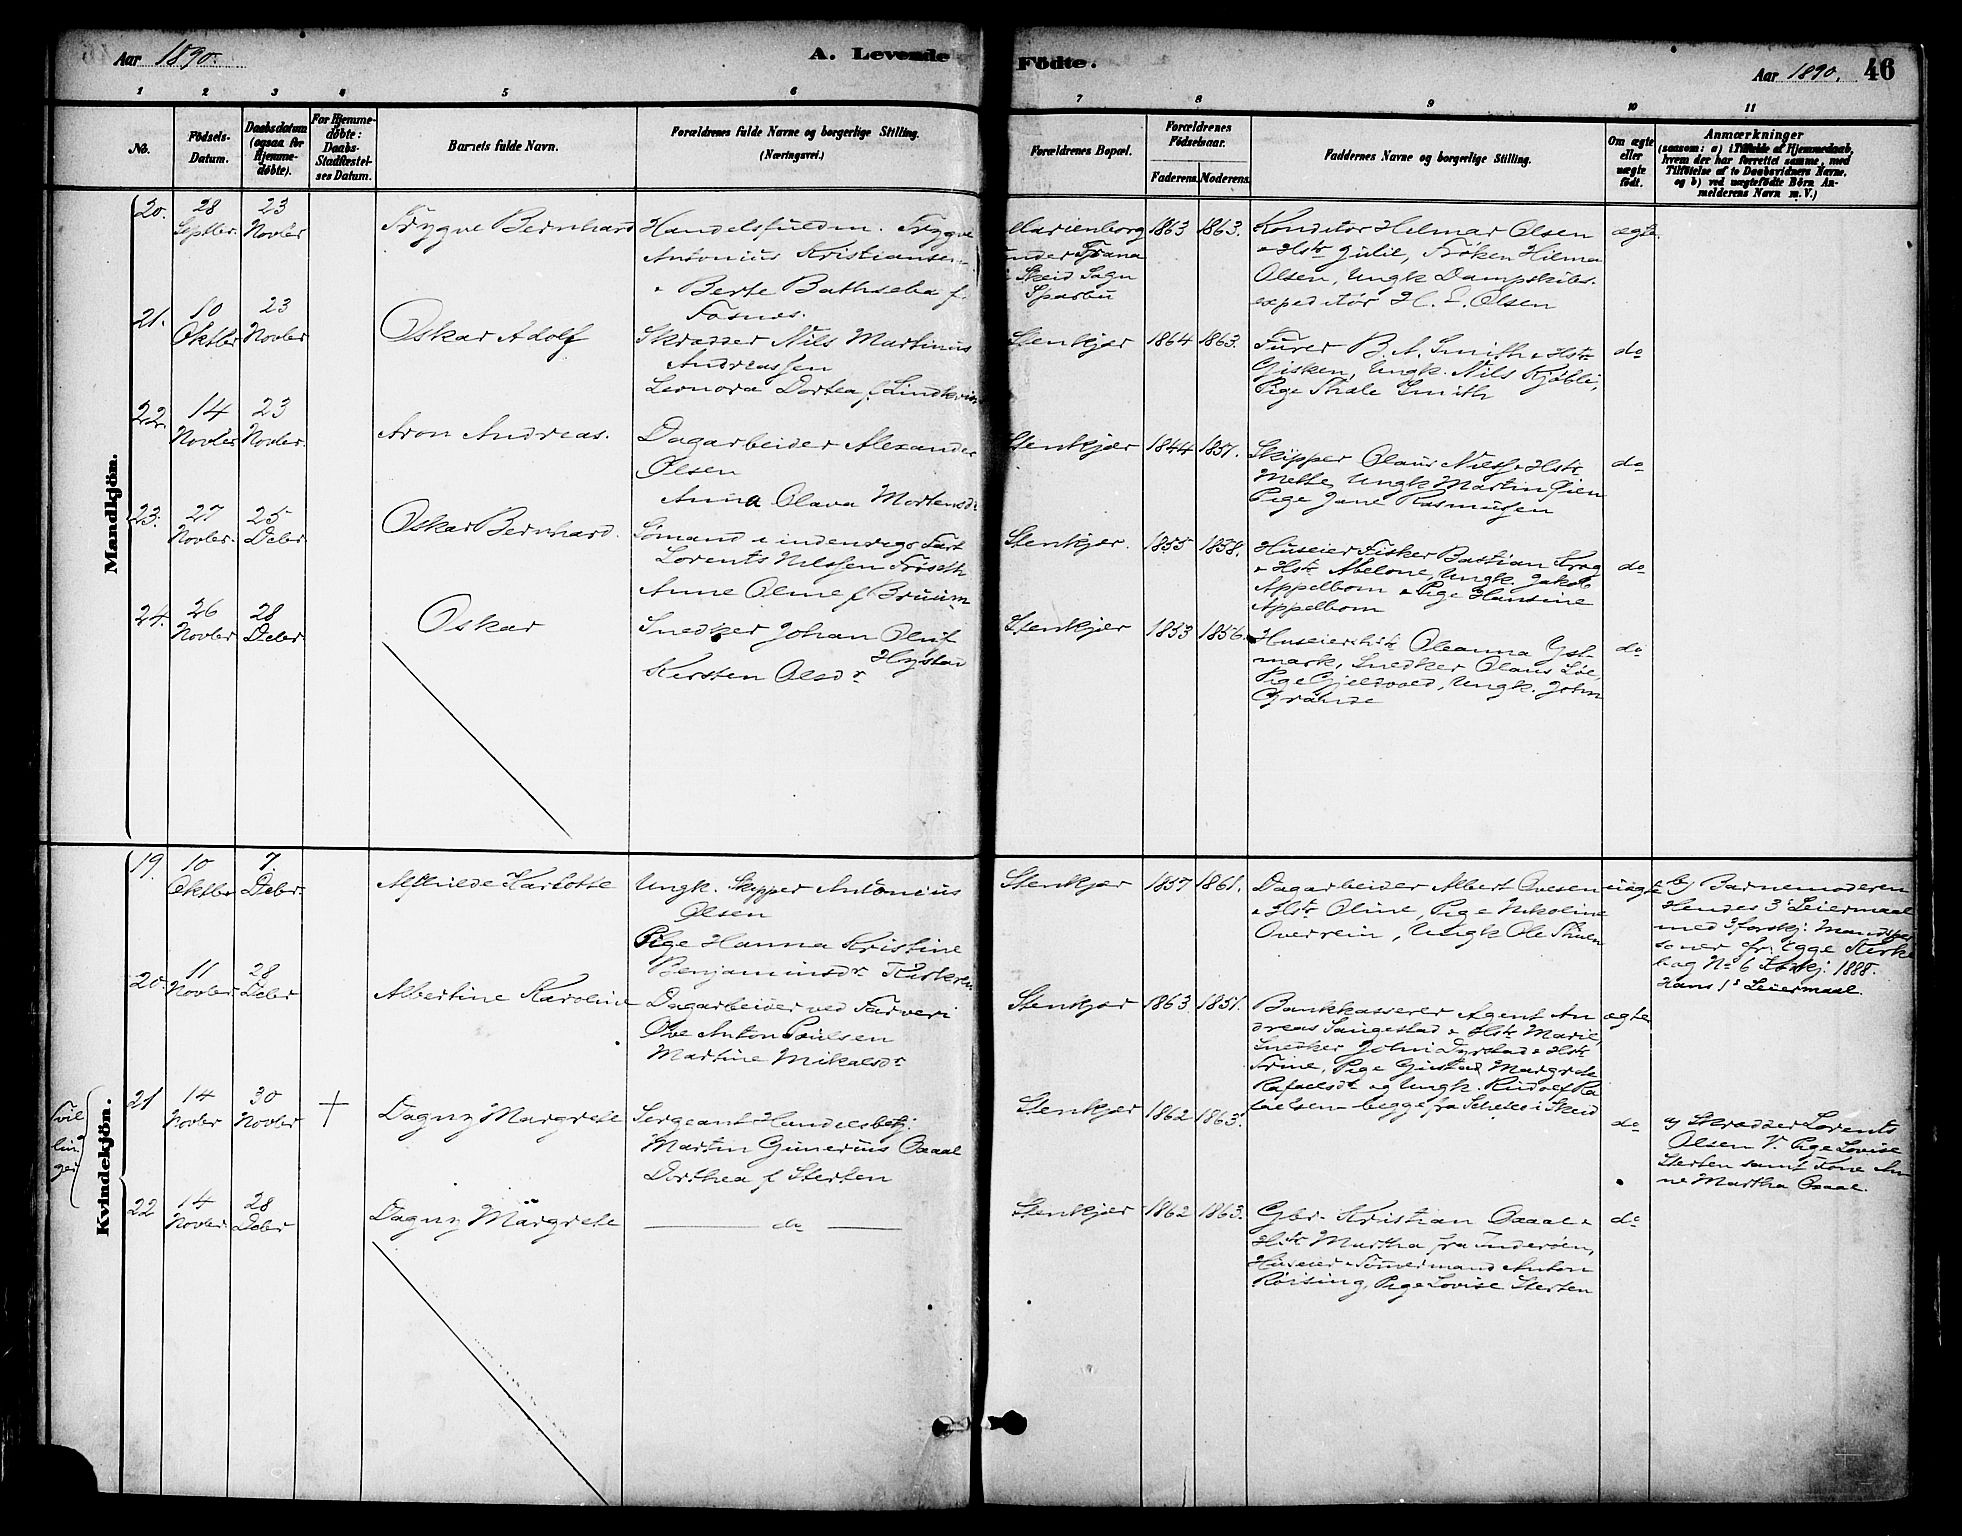 Aar 1890.
A. Levende Fødte.
Aar 1890. 46
1 2 3 4 5 6 7 8 9 10 11
No.
Fødsels-Datum.
Daabsdatum (ogsaa for Hjemmedøbte).
For Hjemmedøbte: Daabs-Stadfæstelses Datum.
Barnets fulde Navn.
Forældrenes fulde Navne og borgerlige Stilling.
(Næringsvei.)
Forældrenes Bopæl.
Forældrenes Fødselsaar.
Faderens. Moderens.
Faddernes Navne og borgerlige Stilling.
Om ægte eller uægte født.
Anmærkninger
(saasom: a) i Tilfælde af Hjemmedaab,
hvem der har forrettet samme, med
Tilføielse af to Daabsvidners Navne,
og b) ved uægtefødte Børn An-
melderens Navn m. V.)
Mandkjön.
20. 28 Septbr. 23 Novbr. Trygve Bernhard
Handelsfuldm. Trygve
Antonius Kristiansen
Berte Bathseba f.
Fosnes.
Marienborg
under Trana
Skeid Sogn
Sparbu
1863 1863.
Konditor Hilmar Olsen
& Hstr Julie, Frøken Hilma
Olsen, Ungk Dampskibs.
expeditør H. Olsen
ægte
21. 10 Oktbr 23 Novbr Oskar Adolf
Skrædder Nils Martinus
Andreassen
Leonora Dortea f.
Stenkjær 1864 1863.
Furer B. A. Smith & Hstr
Gisken, Ungk. Nils Kjøbli,
Pige Thale Smith
do
22. 14 Novbr 23 Novbr. Aron Andreas.
Dagarbeider Alexander
Olsen
Anna Olava Mortensd
Stenkjær 1844 1857.
Skipper Olaus Nilss & Hstr
Mette, Ungk Martin Øien
Pige Jane Rasmussen
do
23. 27 Novbr. 25 Debr Oskar Bernhard.
Sømand i indenrigs Fart
Lorents Nilssen Frøseth
Anne Oline f Bruum
Stenkjær. 1855 1858.
Huseier Fisker Bastian Krog
& Hstr Abelone, Ungk. Jakob
Appelbom & Pige Hansine
Appelbom
do
24. 26 Novbr 28 Debr Oskar
Snedker Johan
Hystad
Kirsten Olsdr
Stenkjær 1853 1856.
Huseierhstr Oleanna Yst-
mark, Snedker Olaus Løe,
Pige Gjeldvold, Ungk. John
Grande
do
Kvindekjön.
19. 10 Oktbr 7 Debr. Alfhilde Karlotte
Ungk. Skipper Antonius
Olsen
Pige Hanna Kristine
Benjaminsdr
Stenkjær 1857 1861.
Dagarbeider Albert Ovesen
& Hstr Oline, Pige Nikoline
Overrein, Ungk Ole
uægte
b) Barnemoderen
Hendes 3' Leiermaal
med 3 forskj. Mandsper
soner cfr. Egge Kirke
bog No 6 1888.
Hans 1s Leiermaal.
20. 11 Novbr. 28 Debr Albertine Karoline
Dagarbeider ved Farveri
Ove Anton Paulsen
Martine Mikalsdr
Stenkjær 1863 1851.
Bankkasserer Agent An
dreas Saugestad & Hstr Marie,
Snedker John Dyrstad & Hstr
Trine, Pige Gjertrud Margrete
Rafaelsdr og Ungk. Rudolf Ra
faelsen begge fra i Skeid
ægte
Tvil
lin
ger
21 14 Novbr 30 Novbr + Dagny Margrete
Sergeant Handelsbetj.
Martin Gunerius Oxaal
Dorthea f Sterten
Stenkjær 1862 1863.
do
a) Skrædder Lorents
Olsen V. Pige Lovise
Sterten samt Kone An-
ne Martha Oxaal.
22 14 Novbr. 28 Debr Dagny Margrete
do
Stenkjær 1862 1863.
Gbr. Kristian Oxaal &
Hstr Martha fra Inderøen,
Huseier Tømmermand Anton
Røising, Pige Lovise Sterten
do